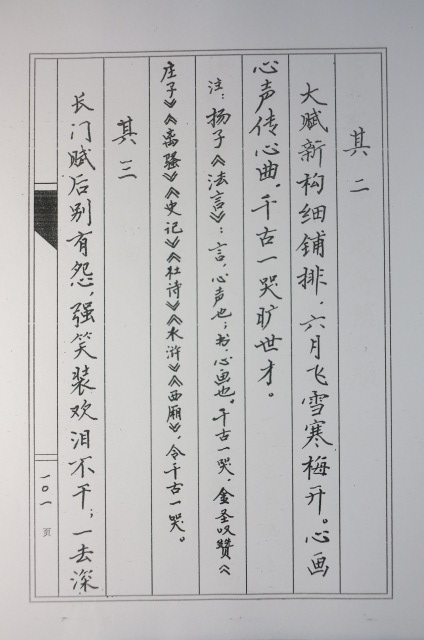 其二
大赋新构细铺排，六月飞雪寒梅开。心画
心声传心曲，千古一哭旷世才。
注：扬子《法言》：言，心声也；书，心画也。千古一哭，金圣叹赞《
庄子》《离骚》《史记》《杜诗》《水浒》《西厢》，令千古一哭。
其三
长门赋后别有怨，强笑装欢泪不干；一去深
一〇一页